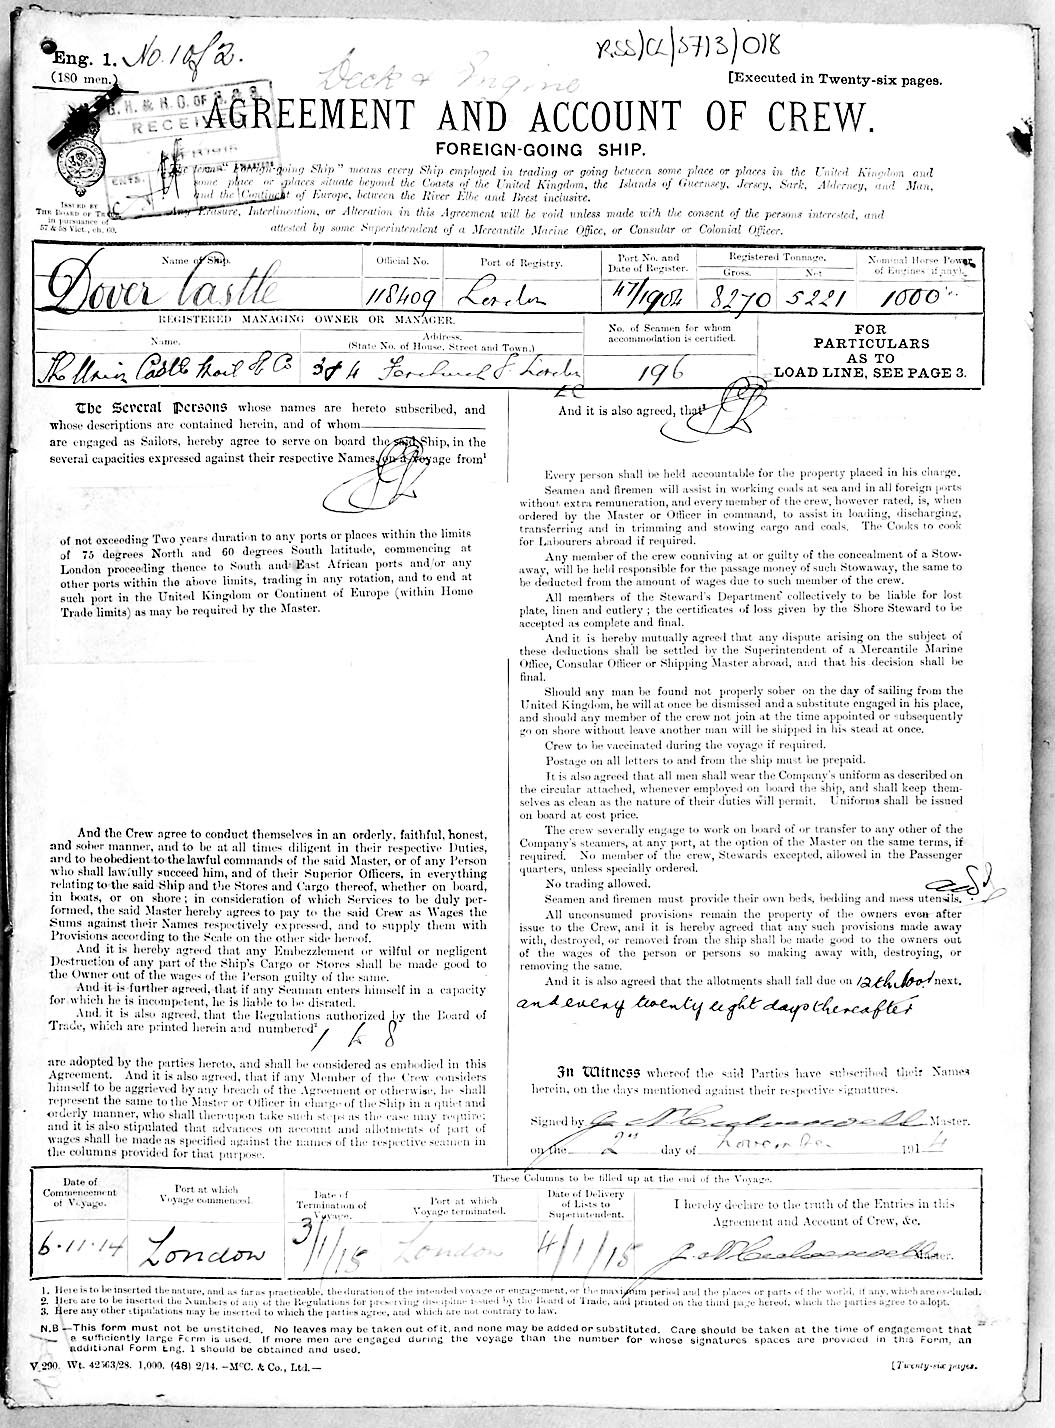 Eng. 1. No. 1 of 2.
RSS/CL/5713/018
(180 men.)
Deck & Engine
[Executed in Twenty-six pages.
G. R. & R. O. OF S. & S.
RECEIVED
AGREEMENT AND ACCOUNT OF CREW.
FOREIGN-GOING SHIP.
The term "Foreign-going Ship" means every Ship employed in trading or going between some place or places in the United Kingdom and
some place or places situate beyond the Coasts of the United Kingdom, the Islands of Guernsey, Jersey, Sark, Alderney, and Man,
and the Continent of Europe, between the River Elbe and Brest inclusive.
ISSUED BY
THE BOARD OF TRADE
in pursuance of
57 & 58 Vict., ch. 60.
Any Erasure, Interlineation, or Alteration in this Agreement will be void unless made with the consent of the persons interested, and
attested by some Superintendent of a Mercantile Marine Office, or Consular or Colonial Officer.
Name of Ship. Official No. Port of Registry. Port No. and Date of Register. Registered Tonnage. Gross. Net Nominal Horse Power of Engines (if any).
Dover Castle 118409 London 47/1904 8270 5221 1000
REGISTERED MANAGING OWNER OR MANAGER.
Name. Address. (State No. of House, Street and Town.)
No. of Seamen for whom accommodation is certified.
FOR PARTICULARS AS TO LOAD LINE, SEE PAGE 3.
The Union Castle Mail SS Co 3 & 4 Fenchurch St London EC 196
The Several Persons whose names are hereto subscribed, and
whose descriptions are contained herein, and of whom
are engaged as Sailors, hereby agree to serve on board the said Ship, in the
several capacities expressed against their respective Names, on a voyage from¹
of not exceeding Two years duration to any ports or places within the limits
of 75 degrees North and 60 degrees South latitude, commencing at
London proceeding thence to South and East African ports and/or any
other ports within the above limits, trading in any rotation, and to end at
such port in the United Kingdom or Continent of Europe (within Home
Trade limits) as may be required by the Master.
And the Crew agree to conduct themselves in an orderly, faithful, honest,
and sober manner, and to be at all times diligent in their respective Duties,
and to be obedient to the lawful commands of the said Master, or of any Person
who shall lawfully succeed him, and of their Superior Officers, in everything
relating to the said Ship and the Stores and Cargo thereof, whether on board,
in boats, or on shore; in consideration of which Services to be duly per-
formed, the said Master hereby agrees to pay to the said Crew as Wages the
Sums against their Names respectively expressed, and to supply them with
Provisions according to the Scale on the other side hereof.
And it is hereby agreed that any Embezzlement or wilful or negligent
Destruction of any part of the Ship's Cargo or Stores shall be made good to
the Owner out of the wages of the Person guilty of the same.
And it is further agreed, that if any Seaman enters himself in a capacity
for which he is incompetent, he is liable to be disrated.
And it is also agreed, that the Regulations authorized by the Board of
Trade, which are printed herein and numbered² 1 to 8
are adopted by the parties hereto, and shall be considered as embodied in this
Agreement. And it is also agreed, that if any Member of the Crew considers
himself to be aggrieved by any breach of the Agreement or otherwise, he shall
represent the same to the Master or Officer in charge of the Ship in a quiet and
orderly manner, who shall thereupon take such steps as the case may require;
and it is also stipulated that advances on account and allotments of part of
wages shall be made as specified against the names of the respective seamen in
the columns provided for that purpose.
And it is also agreed, that³
Every person shall be held accountable for the property placed in his charge.
Seamen and firemen will assist in working coals at sea and in all foreign ports
without extra remuneration, and every member of the crew, however rated, is, when
ordered by the Master or Officer in command, to assist in loading, discharging,
transferring and in trimming and stowing cargo and coals. The Cooks to cook
for Labourers abroad if required.
Any member of the crew conniving at or guilty of the concealment of a Stow-
away, will be held responsible for the passage money of such Stowaway, the same to
be deducted from the amount of wages due to such member of the crew.
All members of the Steward's Department collectively to be liable for lost
plate, linen and cutlery; the certificates of loss given by the Shore Steward to be
accepted as complete and final.
And it is hereby mutually agreed that any dispute arising on the subject of
these deductions shall be settled by the Superintendent of a Mercantile Marine
Office, Consular Officer or Shipping Master abroad, and that his decision shall be
final.
Should any man be found not properly sober on the day of sailing from the
United Kingdom, he will at once be dismissed and a substitute engaged in his place,
and should any member of the crew not join at the time appointed or subsequently
go on shore without leave another man will be shipped in his stead at once.
Crew to be vaccinated during the voyage if required.
Postage on all letters to and from the ship must be prepaid.
It is also agreed that all men shall wear the Company's uniform as described on
the circular attached, whenever employed on board the ship, and shall keep them-
selves as clean as the nature of their duties will permit. Uniforms shall be issued
on board at cost price.
The crew severally engage to work on board of or transfer to any other of the
Company's steamers, at any port, at the option of the Master on the same terms, if
required. No member of the crew, Stewards excepted, allowed in the Passenger
quarters, unless specially ordered.
No trading allowed.
Seamen and firemen must provide their own beds, bedding and mess utensils.
All unconsumed provisions remain the property of the owners even after
issue to the Crew, and it is hereby agreed that any such provisions made away
with, destroyed, or removed from the ship shall be made good to the owners out
of the wages of the person or persons so making away with, destroying, or
removing the same.
And it is also agreed that the allotments shall fall due on 12th Nov next.
and every twenty eight days thereafter
In Witness whereof the said Parties have subscribed their Names
herein, on the days mentioned against their respective signatures.
Signed by Master.
on the 2nd day of November 1914
Date of Commencement of Voyage. Port at which Voyage commenced.
These Columns to be filled up at the end of the Voyage.
Date of Termination of Voyage. Port at which Voyage terminated. Date of Delivery of Lists to Superintendent.
I hereby declare to the truth of the Entries in this
Agreement and Account of Crew, &c.
6.11.14 London 3/1/15 London 4/1/15 Master.
1. Here is to be inserted the nature, and as far as practicable, the duration of the intended voyage or engagement, or the maximum period and the places or parts of the world, if any, which are excluded.
2. Here are to be inserted the Numbers of any of the Regulations for preserving discipline issued by the Board of Trade, and printed on the third page hereof, which the parties agree to adopt.
3. Here any other stipulations may be inserted to which the parties agree, and which are not contrary to law.
N.B—This form must not be unstitched. No leaves may be taken out of it, and none may be added or substituted. Care should be taken at the time of engagement that
a sufficiently large Form is used. If more men are engaged during the voyage than the number for whose signatures spaces are provided in this Form, an
additional Form Eng. 1 should be obtained and used.
V 290. Wt. 42563/28. 1,000. (48) 2/14. —McC. & Co., Ltd.—
[Twenty-six pages.